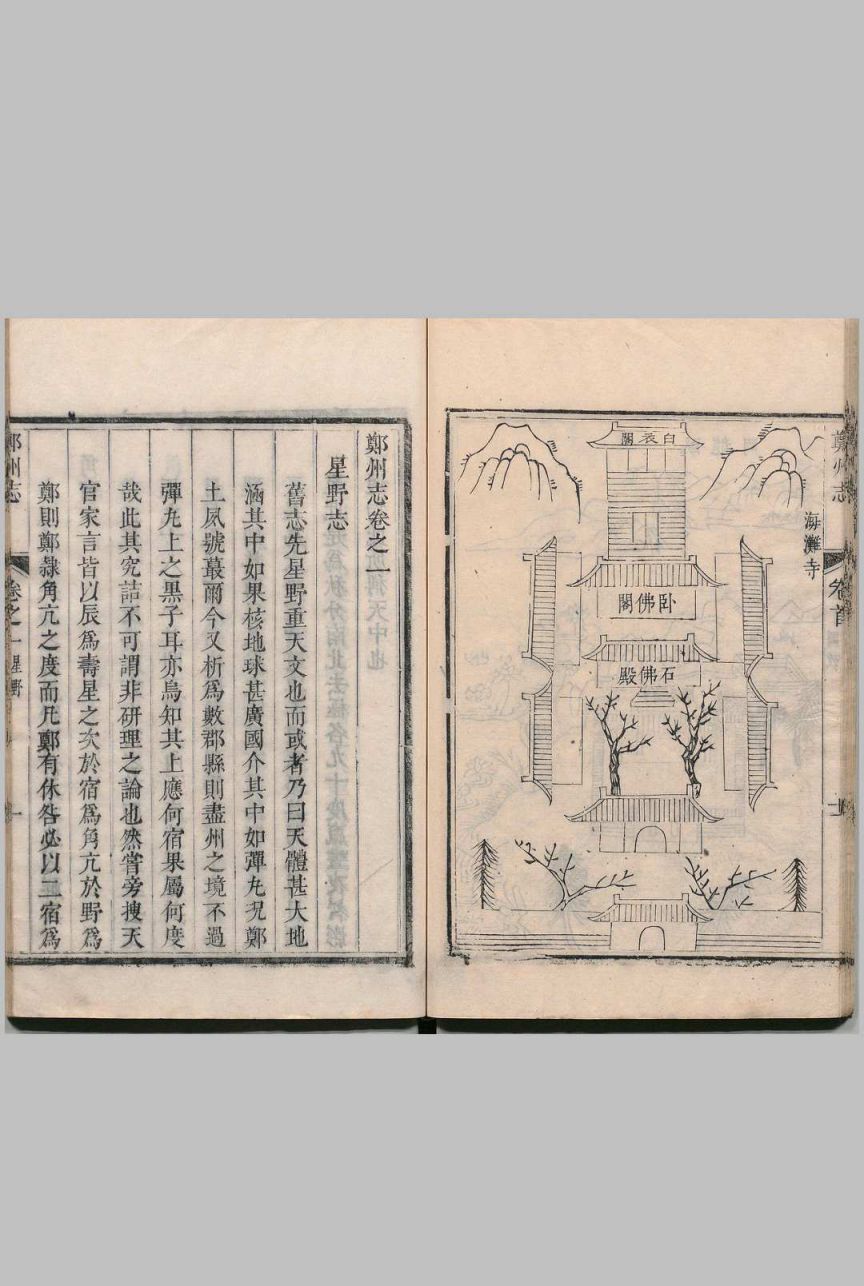 鄭州志
卷首
海灘寺
白衣閣
卧佛閣
石佛殿
鄭州志卷之一
星野志
舊志先星野重天文也而或者乃曰天體甚大地
涵其中如果核地球甚廣國介其中如彈丸況鄭
土夙號蕞爾今又析爲數郡縣則盡州之境不過
彈丸上之黑子耳亦烏知其上應何宿果屬何度
哉此其究詰不可謂非研理之論也然嘗旁搜天
官家言皆以辰爲壽星之次於宿爲角亢於野爲
鄭則鄭隸角亢之度而凡鄭有休咎必以二宿爲
鄭州志
卷之一 星野
一